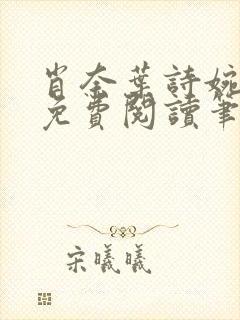 肖奈葉詩婉
免費閱讀筆
宋曦曦